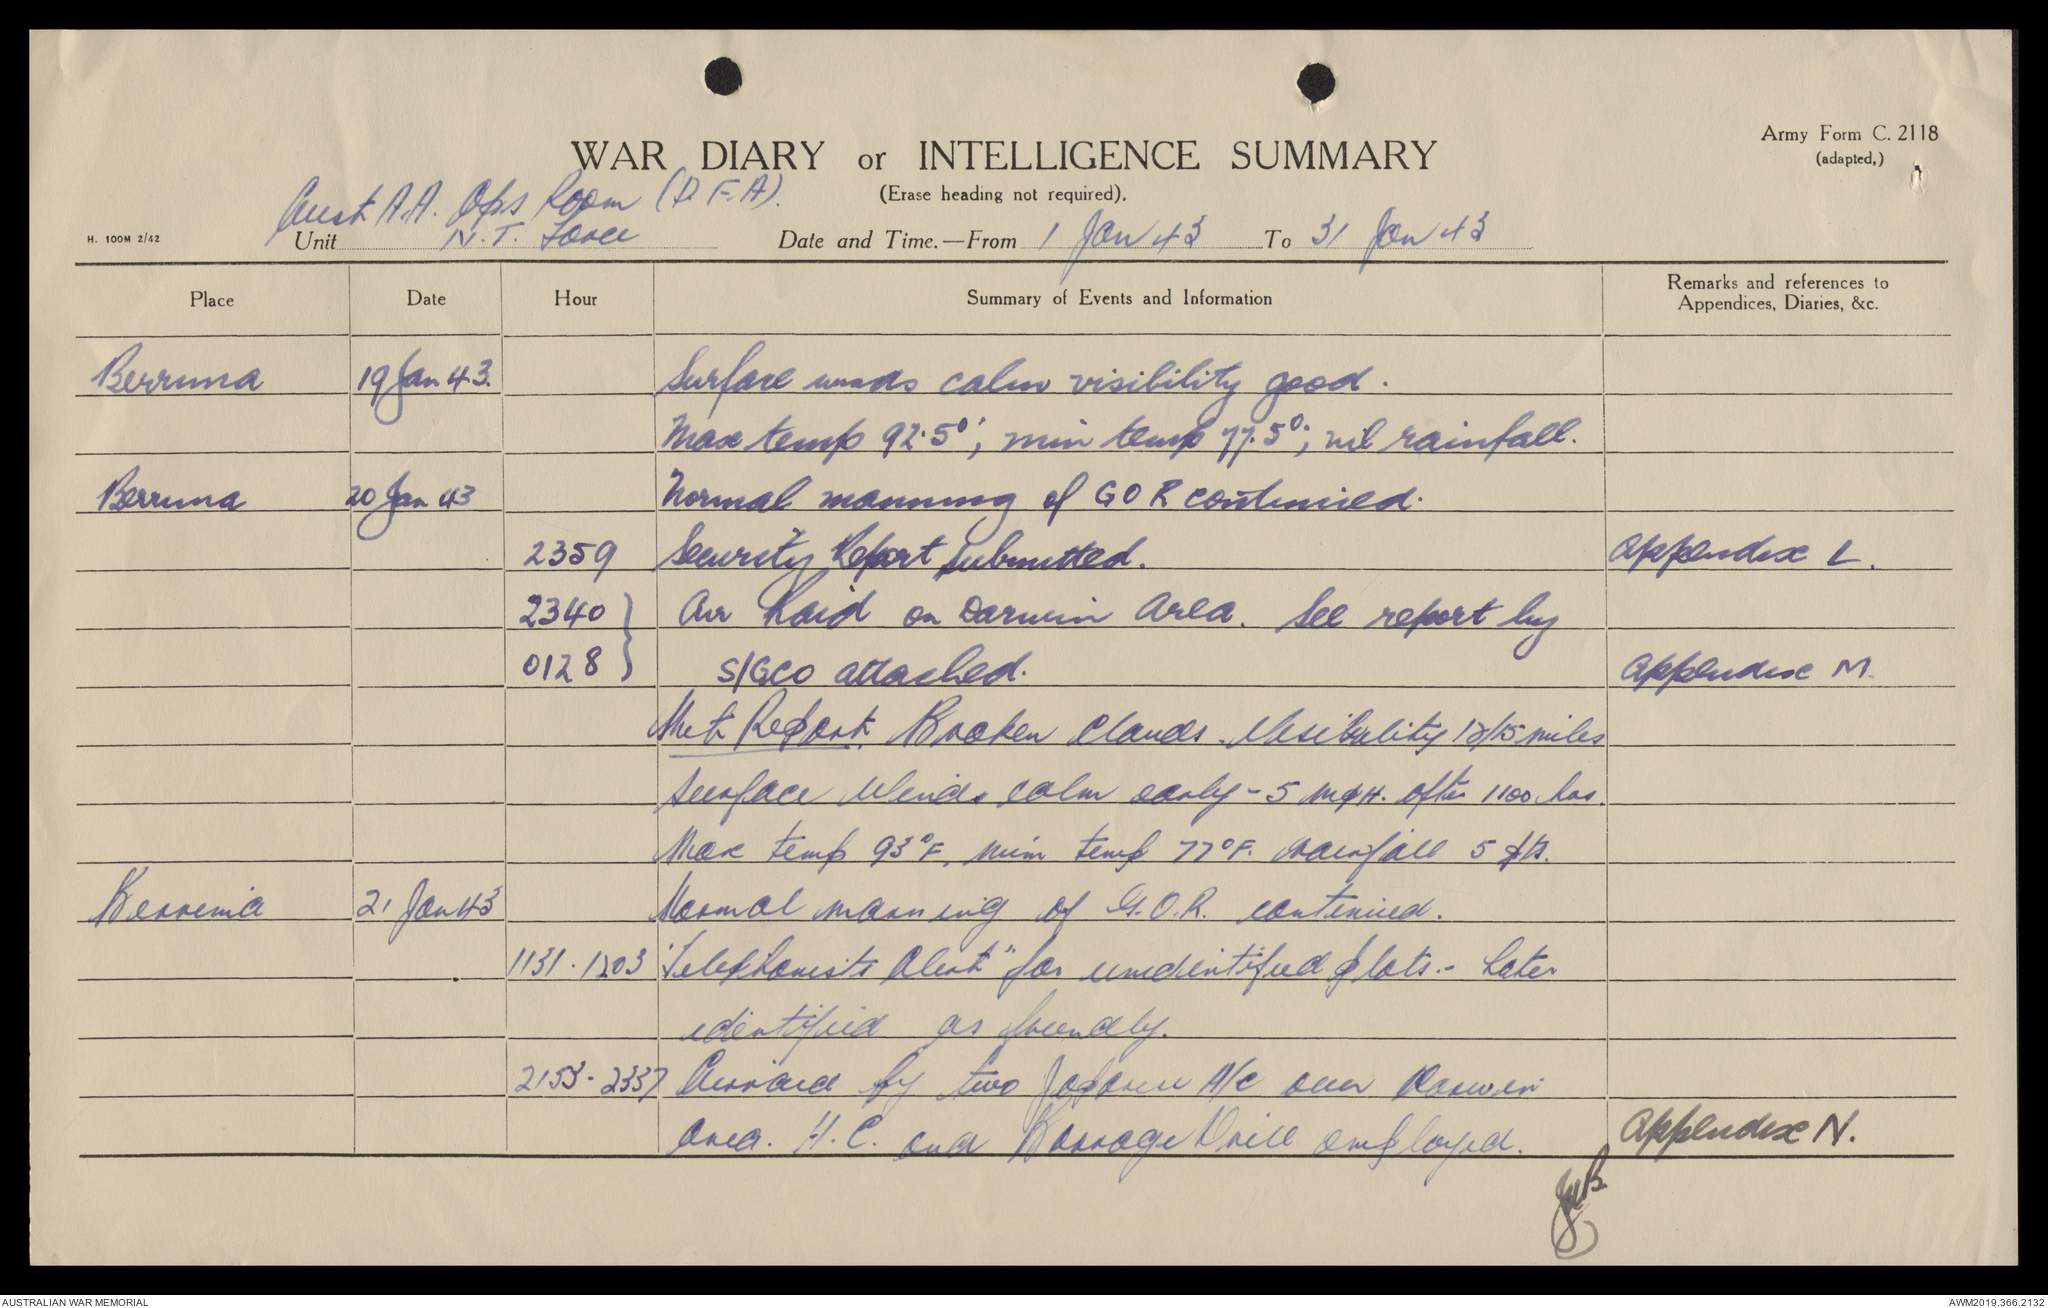 WAR DIARY or INTELLIGENCE SUMMARY
Army Form C. 2118
(adapted.)
(Erase heading not required).
Aust A.A. Ops Room (D.F.A).
H. 100M 2/42
Unit N.T. Force Date and Time.—From 1 Jan 43 To 31 Jan 43
Place Date Hour Summary of Events and Information Remarks and references to Appendices, Diaries, &c.
Berrima 19 Jan 43. Surface winds calm visibility good.
Max temp 92.5°; min temp 77.5°; nil rainfall.
Berrima 20 Jan 43 Normal manning of GOR continued.
2359 Security Report submitted. Appendix L.
2340 } Air Raid on Darwin Area. See report by
0128 } S/GCO attached. Appendix M.
Met Report. Broken Clouds. Visibility 12/15 miles
Surface Winds calm early - 5 mpH. after 1100 hrs.
Max temp 93°F, min temp 77°F. rainfall 5 pts.
Berrima 21 Jan 43 Normal manning of G.O.R. continued.
1131-1203 "Telephonists Alert" for unidentified plots - Later
identified as friendly.
2153-2337 Air raid by two Japanese A/c over Darwin
area. H.C. and Barrage Drill employed. Appendix N.
AUSTRALIAN WAR MEMORIAL
AWM2019.366.2132